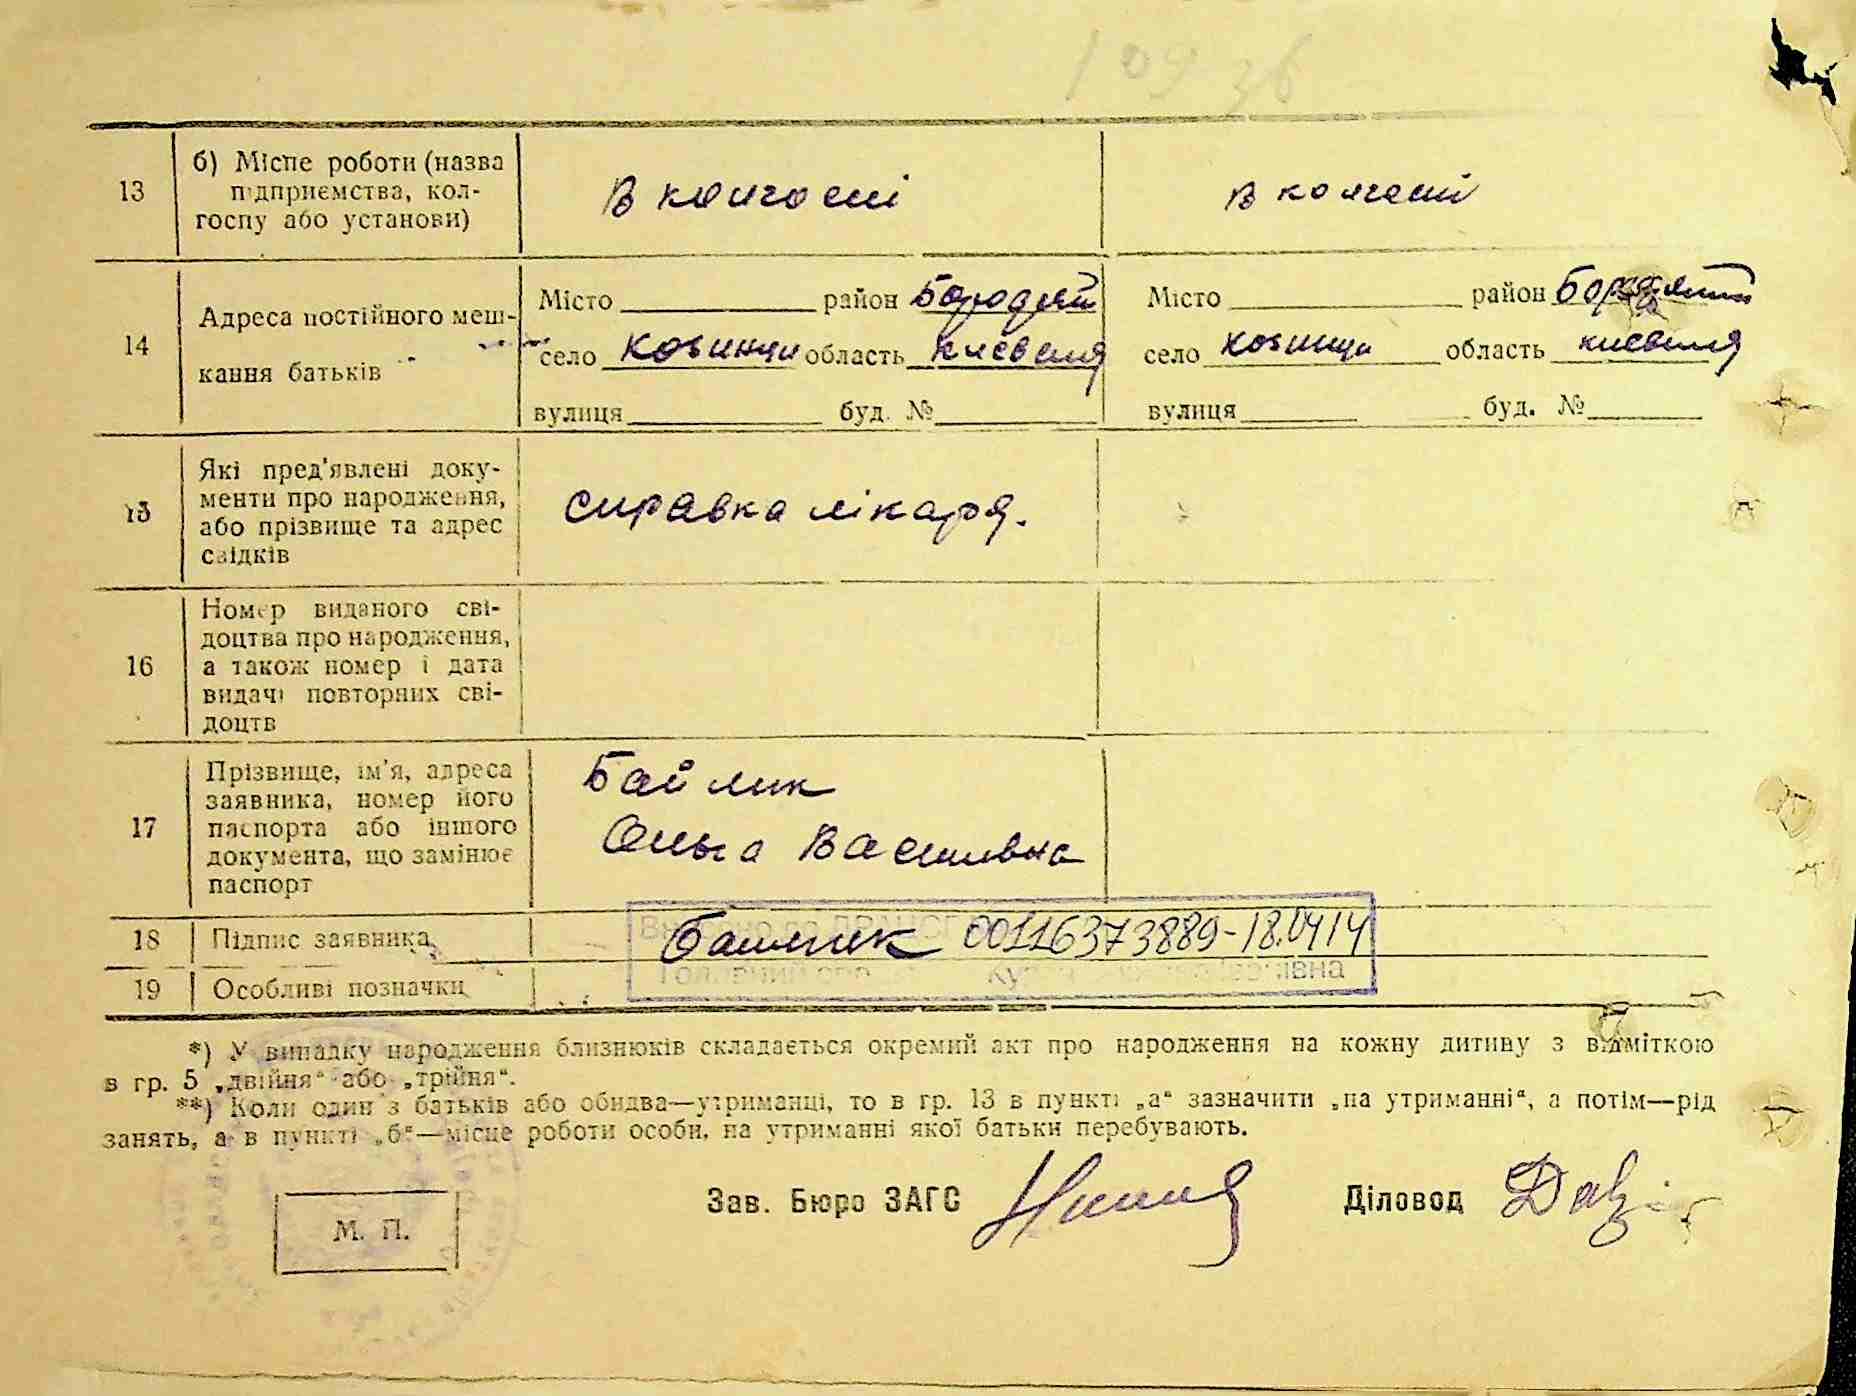 109 зв
13
б) Місце роботи (назва
підприємства, кол-
госпу або установи)
в колгоспі
в колгоспі
14
Адреса постійного меш-
кання батьків
Місто район Бородян
село Козинци область київська
вулиця буд. №
Місто район Бородян
село козинци область київська
вулиця буд. №
15
Які пред'явлені доку-
менти про народження,
або прізвище та адрес
свідків
справка лікаря.
16
Номер виданого сві-
доцтва про народження,
а також номер і дата
видачі повторних сві-
доцтв
17
Прізвище, ім'я, адреса
заявника, номер його
паспорта або іншого
документа, що замінює
паспорт
Байлик
Ольга Василивна
18 Підпис заявника
Байлик 00116373889-18.04.14
19 Особливі позначки
*) У випадку народження близнюків складається окремий акт про народження на кожну дитину з відміткою
в гр. 5 „двійня“ або „трійня“.
**) Коли один з батьків або обидва—утриманці, то в гр. 13 в пункті „а“ зазначити „на утриманні“, а потім—рід
занять, а в пункті „б“—місце роботи особи, на утриманні якої батьки перебувають.
Зав. Бюро ЗАГС
Діловод
М. П.